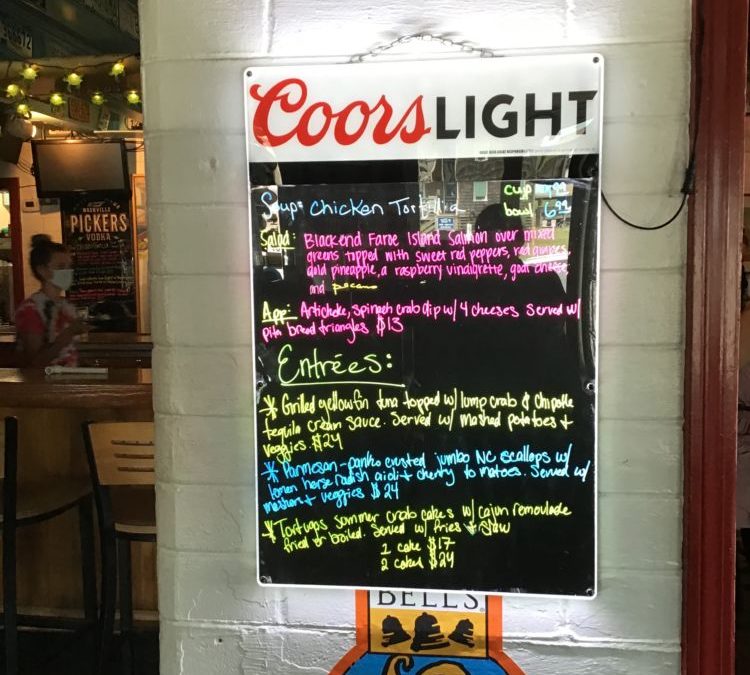 Coors LIGHT
NASHVILLE
PICKERS
VODKA
Soup: Chicken Tortilla
cup
bowl 6.99
Salad: Blackend Faroe Island Salmon over mixed
greens topped with sweet red peppers, red grapes,
gold pineapple, a raspberry vinaigrette, goat cheese,
and pecans
App: Artichoke, spinach crab dip w/ 4 cheeses served w/
pita bread triangles $13
Entrées:
* Grilled yellowfin tuna topped w/ lump crab & chipotle
tequila cream sauce. Served w/ mashed potatoes +
veggies. $24
* Parmesan-panko crusted jumbo NC scallops w/
lemon horseradish aioli + cherry tomatoes. Served w/
mashers + veggies $24
* Tortugas summer crab cakes w/ cajun remoulade
fried or broiled. Served w/ fries + slaw
1 cake $17
2 cakes $24
BELL'S